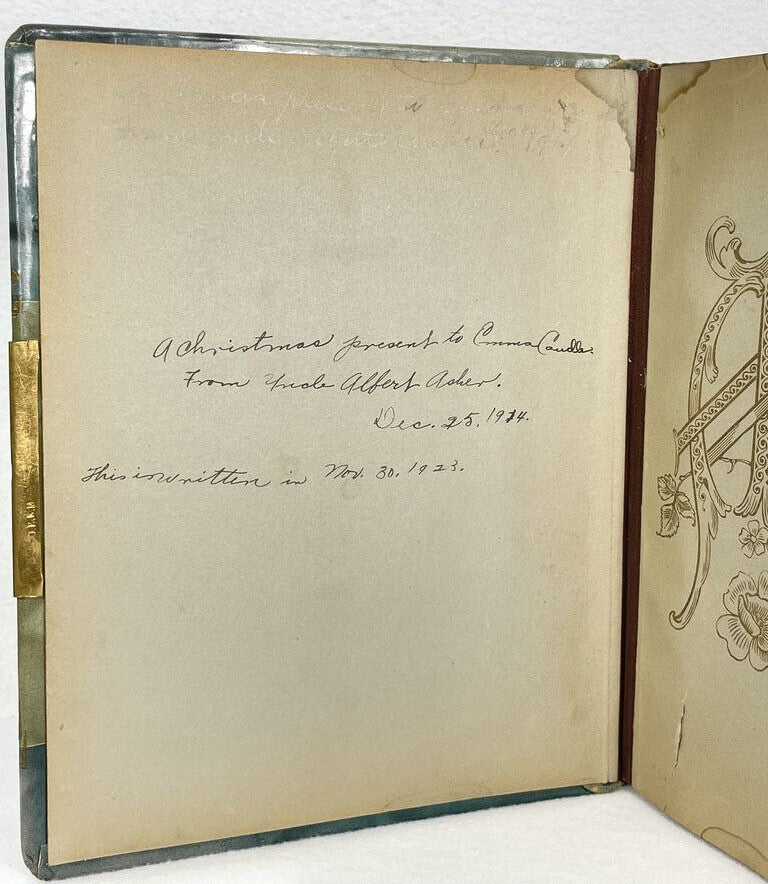 A Christmas present to Emma Caudle.
From Uncle Albert Asher.
Dec. 25. 1914.
This is written in Nov. 30. 1923.